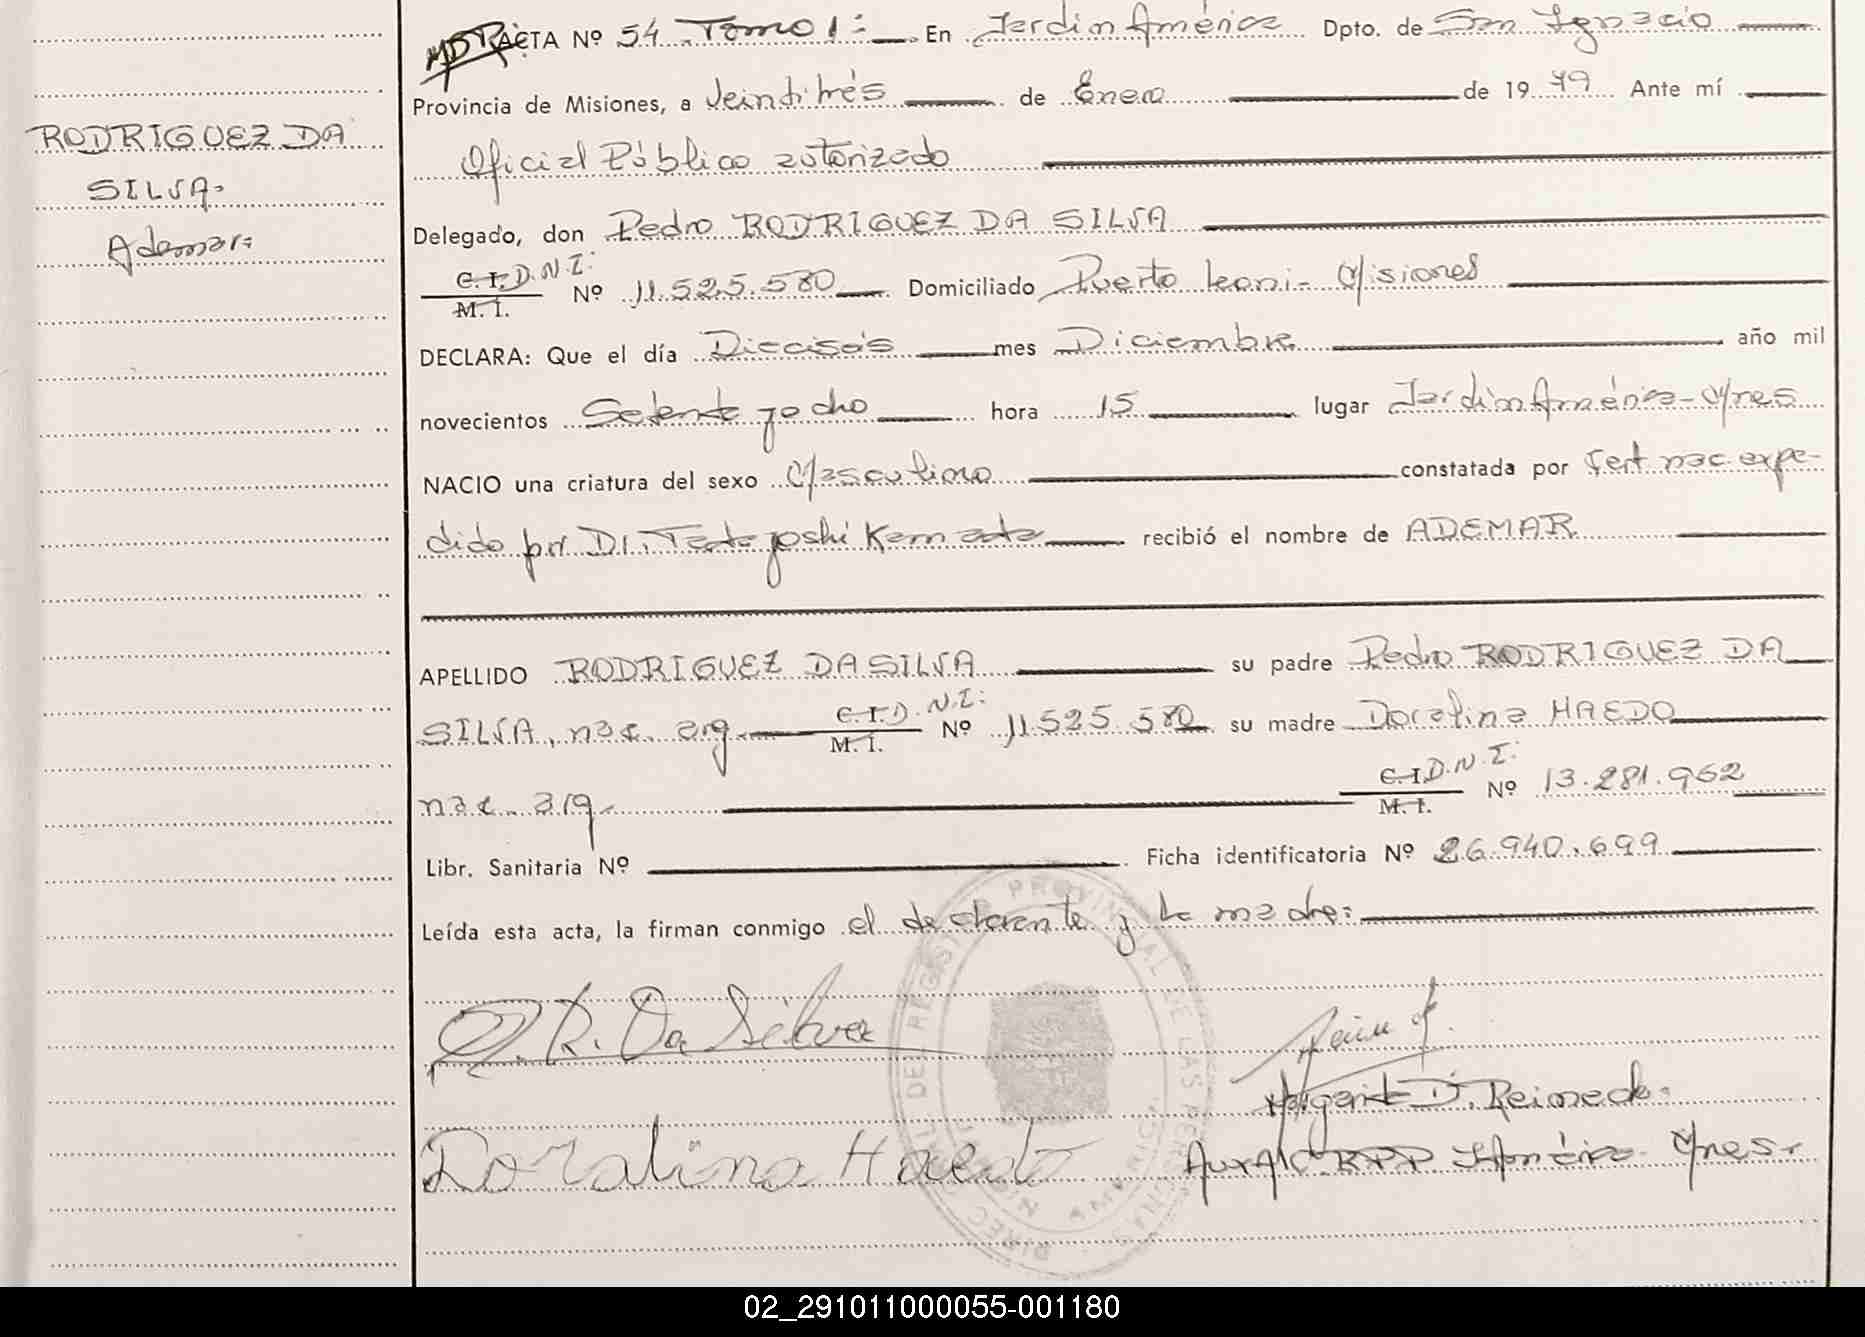 RODRIGUEZ DA
SILVA.
Ademar:
ACTA Nº 54 Tomo 1:- En Jardin América Dpto. de San Ignacio
Provincia de Misiones, a Veintitrés de Enero de 1979 Ante mí
Oficial Público autorizado
Delegado, don Pedro RODRIGUEZ DA SILVA
C.I. D.N.I:
M.I. Nº 11.525.580 Domiciliado Puerto Leoni - Misiones
DECLARA: Que el día Dieciseis mes Diciembre año mil
novecientos Setenta y ocho hora 15 lugar Jardin América - Mnes
NACIO una criatura del sexo Masculino constatada por Cert. nac. expe-
dido por Dr. recibió el nombre de ADEMAR
APELLIDO RODRIGUEZ DA SILVA su padre Pedro RODRIGUEZ DA
SILVA, nac. arg. C.I. D.N.I: M.I. Nº 11.525.580 su madre Doralina HAEDO
nac. arg. C.I. D.N.I: M.I. Nº 13.281.962
Libr. Sanitaria Nº Ficha identificatoria Nº 26.940.699
Leída esta acta, la firman conmigo el declarante y la madre:
R. Da Silva
Doralina Haedo
Margarita D. Reineck
América Mnes
DIREC. GRAL. DEL REGISTRO PROVINCIAL DE LAS PERSONAS
02_291011000055-001180